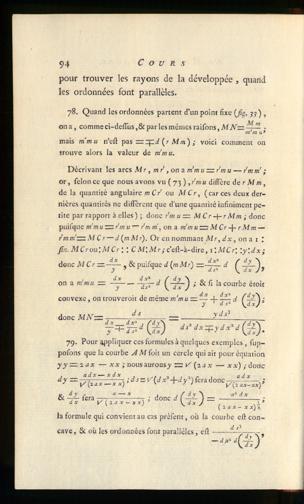 94 COURS
pour trouver les rayons de la développée, quand
les ordonnées sont parallèles.
78. Quand les ordonnées partent d'un point fixe (fig. 33),
on a, comme ci-dessus, & par les mêmes raisons, MN = Mm/m'mu;
mais m'mu n'est pas = ∓ d(rMm); voici comment on
trouve alors la valeur de m'mu.
Décrivant les arcs Mr, mr', on a m'mu = r'mu — r'mm';
or, selon ce que nous avons vu (73), r'mu differe de rMm,
de la quantité angulaire mCr' ou MCr, (car ces deux der-
nières quantités ne diffèrent que d'une quantité infiniment pe-
tite par rapport à elles); donc r'mu = MCr + rMm; donc
puisque m'mu = r'mu — r'mm', on a m'mu = MCr + rMm —
r'mm' = MCr — d(mMr). Or en nommant Mr, dx, on a 1 :
sin. MCr ou : MCr :: CM : Mr; c'est-à-dire, 1 : MCr :: y : dx;
donc MCr = dx/y, & puisque d(mMr) = dx²/ds² d(dy/dx),
on a m'mu = dx/y — dx²/ds² d(dy/dx); & si la courbe étoit
convexe, on trouveroit de même m'mu = dx/y + dx²/ds² d(dy/dx);
donc MN = ds/(dx/y ∓ dx²/ds² d(dy/dx)) = y ds³/(ds² dx ∓ y dx² d(dy/dx))
79. Pour appliquer ces formules à quelques exemples, sup-
posons que la courbe AM soit un cercle qui ait pour équation
yy = 2ax — xx; nous aurons y = √(2ax — xx); donc
dy = (adx — xdx)/√(2ax — xx); ds = √(dx² + dy²) sera donc adx/√(2ax — xx);
& dy/dx sera (a — x)/√(2ax — xx); donc d(dy/dx) =
la formule qui convient au cas présent, où la courbe est con-
cave, & où les ordonnées sont parallèles, est ds³/(— dx² d(dy/dx)),